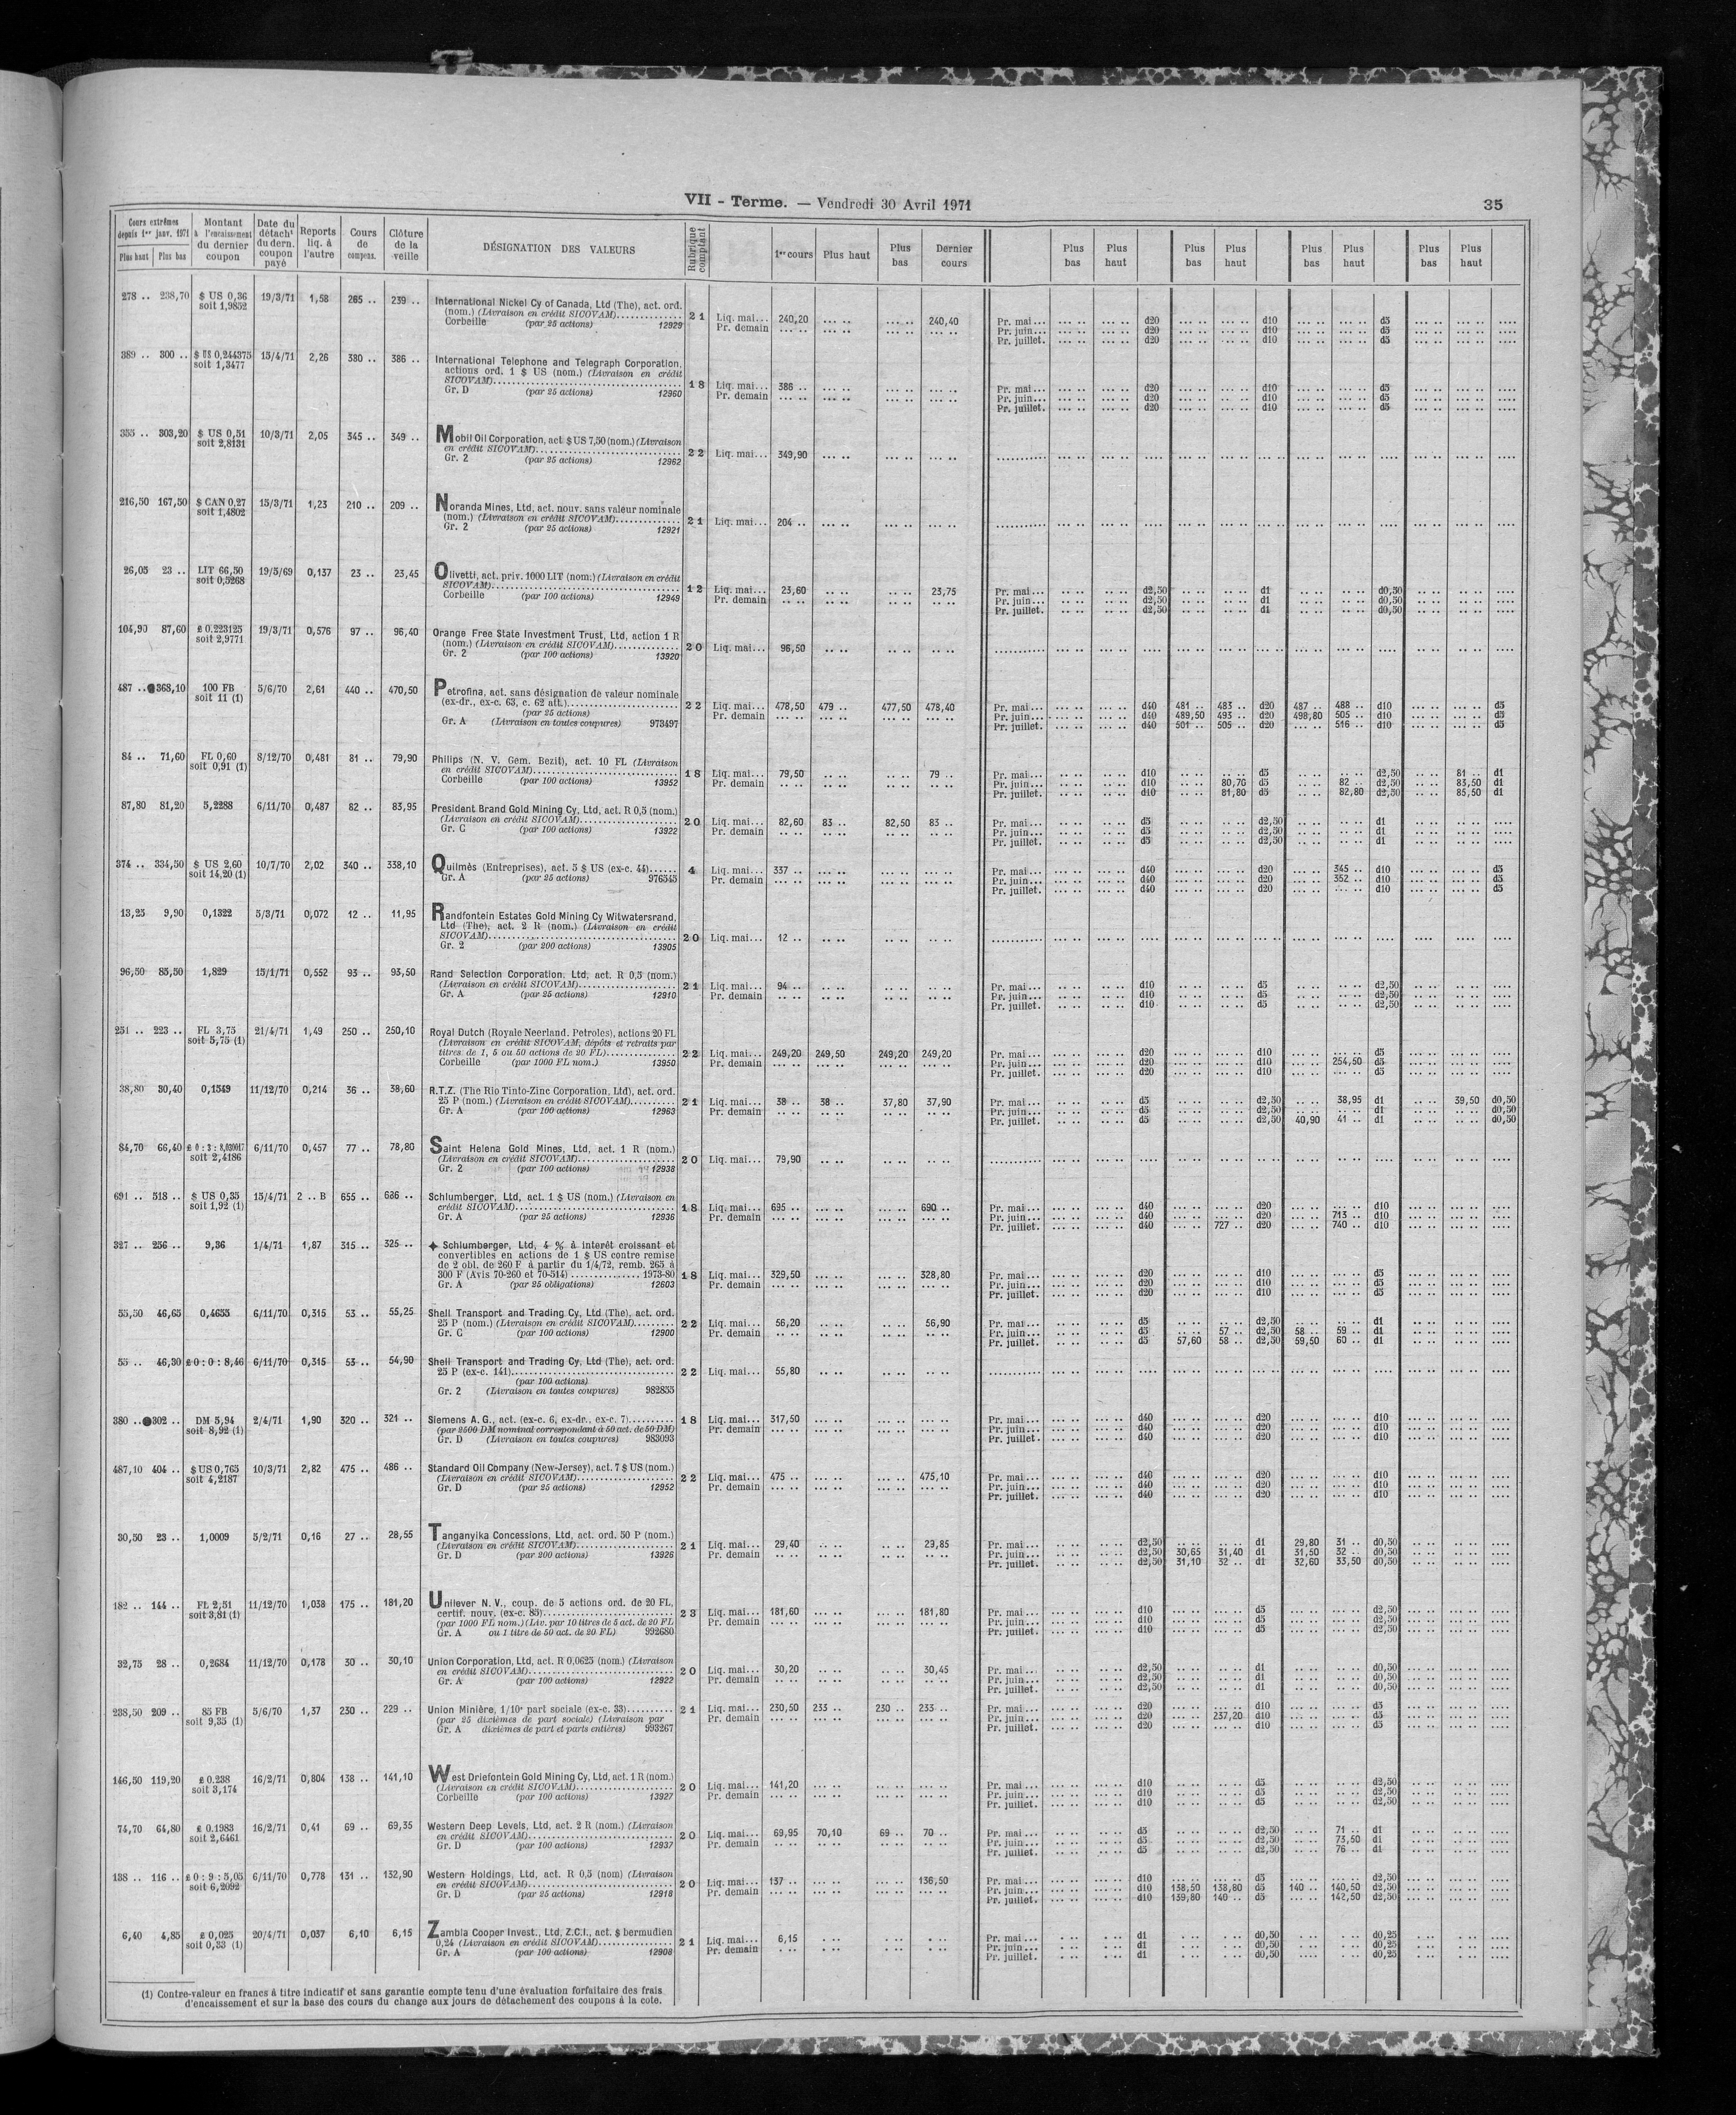 VII - Terme. — Vendredi 30 Avril 1971 35
Cours extrêmes depuis 1er janv. 1971 Plus haut Plus bas | Montant à l'encaissement du dernier coupon | Date du détacht du dern. coupon payé | Reports liq. à l'autre | Cours de compens. | Clôture de la veille | DÉSIGNATION DES VALEURS | Rubrique comptant | 1er cours | Plus haut | Plus bas | Dernier cours | Plus bas | Plus haut | Plus bas | Plus haut | Plus bas | Plus haut | Plus bas | Plus haut
278 .. 238,70 $ US 0,36 19/3/71 1,58 265 .. 239 .. International Nickel Cy of Canada, Ltd (The), act. ord.
soit 1,9852 (nom.) (Livraison en crédit SICOVAM)
Corbeille (par 25 actions) 12929 21 Liq. mai... 240,20 ... .. ... .. 240,40 Pr. mai... d20 d10 d5
Pr. demain Pr. juin... d20 d10 d5
Pr. juillet. d20 d10 d5
389 .. 300 .. $ US 0,244375 15/4/71 2,26 380 .. 386 .. International Telephone and Telegraph Corporation,
soit 1,3477 actions ord. 1 $ US (nom.) (Livraison en crédit
SICOVAM)
Gr. D (par 25 actions) 12960 18 Liq. mai... 386 .. Pr. mai... d20 d10 d5
Pr. demain Pr. juin... d20 d10 d5
Pr. juillet. d20 d10 d5
355 .. 303,20 $ US 0,51 10/3/71 2,05 345 .. 349 .. Mobil Oil Corporation, act. $ US 7,50 (nom.) (Livraison
soit 2,8131 en crédit SICOVAM)
Gr. 2 (par 25 actions) 12962 22 Liq. mai... 349,90
216,50 167,50 $ CAN 0,27 15/3/71 1,23 210 .. 209 .. Noranda Mines, Ltd, act. nouv. sans valeur nominale
soit 1,4802 (nom.) (Livraison en crédit SICOVAM)
Gr. 2 (par 25 actions) 12921 21 Liq. mai... 204 ..
26,05 23 .. LIT 66,50 19/5/69 0,137 23 .. 23,45 Olivetti, act. priv. 1000 LIT (nom.) (Livraison en crédit
soit 0,5268 SICOVAM)
Corbeille (par 100 actions) 12949 12 Liq. mai... 23,60 23,75 Pr. mai... d2,50 d1 d0,50
Pr. demain Pr. juin... d2,50 d1 d0,50
Pr. juillet. d2,50 d1 d0,50
104,90 87,60 £ 0.223125 19/3/71 0,576 97 .. 96,40 Orange Free State Investment Trust, Ltd, action 1 R
soit 2,9771 (nom.) (Livraison en crédit SICOVAM)
Gr. 2 (par 100 actions) 13920 20 Liq. mai... 96,50
487 .. 368,10 100 FB 5/6/70 2,61 440 .. 470,50 Petrofina, act. sans désignation de valeur nominale
soit 11 (1) (ex-dr., ex-c. 63, c. 62 att.)
(par 25 actions) 22 Liq. mai... 478,50 479 .. 477,50 478,40 Pr. mai... d40 481 .. 483 .. d20 487 .. 488 .. d10 d5
Gr. A (Livraison en toutes coupures) 973497 Pr. demain Pr. juin... d40 489,50 493 .. d20 498,80 505 .. d10 d5
Pr. juillet. d40 501 .. 505 .. d20 516 .. d10 d5
84 .. 71,60 FL 0,60 8/12/70 0,481 81 .. 79,90 Philips (N. V. Gem. Bezit), act. 10 FL (Livraison
soit 0,91 (1) en crédit SICOVAM)
Corbeille (par 100 actions) 13952 18 Liq. mai... 79,50 79 .. Pr. mai... d10 d5 d2,50 81 .. d1
Pr. demain Pr. juin... d10 80,70 d5 82 .. d2,50 83,50 d1
Pr. juillet. d10 81,80 d5 82,80 d2,50 85,50 d1
87,80 81,20 5,2288 6/11/70 0,487 82 .. 83,95 President Brand Gold Mining Cy, Ltd, act. R 0,5 (nom.)
(Livraison en crédit SICOVAM)
Gr. C (par 100 actions) 13922 20 Liq. mai... 82,60 83 .. 82,50 83 .. Pr. mai... d5 d2,50 d1
Pr. demain Pr. juin... d5 d2,50 d1
Pr. juillet. d5 d2,50 d1
374 .. 334,50 $ US 2,60 10/7/70 2,02 340 .. 338,10 Quilmès (Entreprises), act. 5 $ US (ex-c. 44)
soit 14,20 (1) Gr. A (par 25 actions) 976545 4 Liq. mai... 337 .. Pr. mai... d40 d20 345 .. d10 d5
Pr. demain Pr. juin... d40 d20 352 .. d10 d5
Pr. juillet. d40 d20 d10 d5
13,25 9,90 0,1322 5/3/71 0,072 12 .. 11,95 Randfontein Estates Gold Mining Cy Witwatersrand,
Ltd (The), act. 2 R (nom.) (Livraison en crédit
SICOVAM)
Gr. 2 (par 200 actions) 13905 20 Liq. mai... 12 ..
96,50 85,50 1,829 15/1/71 0,552 93 .. 93,50 Rand Selection Corporation, Ltd, act. R 0,5 (nom.)
(Livraison en crédit SICOVAM)
Gr. A (par 25 actions) 12910 21 Liq. mai... 94 .. Pr. mai... d10 d5 d2,50
Pr. demain Pr. juin... d10 d5 d2,50
Pr. juillet. d10 d5 d2,50
251 .. 223 .. FL 3,75 21/4/71 1,49 250 .. 250,10 Royal Dutch (Royale Neerland. Petroles), actions 20 FL
soit 5,75 (1) (Livraison en crédit SICOVAM, dépôts et retraits par
titres de 1, 5 ou 50 actions de 20 FL)
Corbeille (par 1000 FL nom.) 13950 22 Liq. mai... 249,20 249,50 249,20 249,20 Pr. mai... d20 d10 d5
Pr. demain Pr. juin... d20 d10 254,50 d5
Pr. juillet. d20 d10 d5
38,80 30,40 0,1549 11/12/70 0,214 36 .. 38,60 R.T.Z. (The Rio Tinto-Zinc Corporation, Ltd), act. ord.
25 P (nom.) (Livraison en crédit SICOVAM)
Gr. A (par 100 actions) 12963 21 Liq. mai... 38 .. 38 .. 37,80 37,90 Pr. mai... d5 d2,50 38,95 d1 39,50 d0,50
Pr. demain Pr. juin... d5 d2,50 d1 d0,50
Pr. juillet. d5 d2,50 40,90 41 .. d1 d0,50
84,70 66,40 6/11/70 0,457 77 .. 78,80 Saint Helena Gold Mines, Ltd, act. 1 R (nom.)
soit 2,4186 (Livraison en crédit SICOVAM)
Gr. 2 (par 100 actions) 12938 20 Liq. mai... 79,90
691 .. 518 .. $ US 0,35 15/4/71 2 .. B 655 .. 686 .. Schlumberger, Ltd, act. 1 $ US (nom.) (Livraison en
soit 1,92 (1) crédit SICOVAM)
Gr. A (par 25 actions) 12936 18 Liq. mai... 695 .. 690 .. Pr. mai... d40 d20 d10
Pr. demain Pr. juin... d40 d20 713 .. d10
Pr. juillet. d40 727 .. d20 740 .. d10
327 .. 256 .. 9,36 1/4/71 1,87 315 .. 325 .. ✦ Schlumberger, Ltd, 4 % à interêt croissant et
convertibles en actions de 1 $ US contre remise
de 2 obl. de 260 F à partir du 1/4/72, remb. 265 à
300 F (Avis 70-260 et 70-514) 1973-80
Gr. A (par 25 obligations) 12603 18 Liq. mai... 329,50 328,80 Pr. mai... d20 d10 d5
Pr. demain Pr. juin... d20 d10 d5
Pr. juillet. d20 d10 d5
55,50 46,65 0,4655 6/11/70 0,315 53 .. 55,25 Shell Transport and Trading Cy, Ltd (The), act. ord.
25 P (nom.) (Livraison en crédit SICOVAM)
Gr. C (par 100 actions) 12900 22 Liq. mai... 56,20 56,90 Pr. mai... d5 d2,50 d1
Pr. demain Pr. juin... d5 57 .. d2,50 58 .. 59 .. d1
Pr. juillet. d5 57,60 58 .. d2,50 59,50 60 .. d1
55 .. 46,30 £ 0 : 0 : 8,46 6/11/70 0,315 53 .. 54,90 Shell Transport and Trading Cy, Ltd (The), act. ord.
25 P (ex-c. 141) 22 Liq. mai... 55,80
(par 100 actions)
Gr. 2 (Livraison en toutes coupures) 982855
380 .. 302 .. DM 5,94 2/4/71 1,90 320 .. 321 .. Siemens A. G., act. (ex-c. 6, ex-dr., ex-c. 7)
soit 8,92 (1) (par 2500 DM nominal correspondant à 50 act. de 50 DM)
Gr. D (Livraison en toutes coupures) 983093 18 Liq. mai... 317,50 Pr. mai... d40 d20 d10
Pr. demain Pr. juin... d40 d20 d10
Pr. juillet. d40 d20 d10
487,10 404 .. $ US 0,765 10/3/71 2,82 475 .. 486 .. Standard Oil Company (New-Jersey), act. 7 $ US (nom.)
soit 4,2187 (Livraison en crédit SICOVAM)
Gr. D (par 25 actions) 12952 22 Liq. mai... 475 .. 475,10 Pr. mai... d40 d20 d10
Pr. demain Pr. juin... d40 d20 d10
Pr. juillet. d40 d20 d10
30,50 23 .. 1,0009 5/2/71 0,16 27 .. 28,55 Tanganyika Concessions, Ltd, act. ord. 50 P (nom.)
(Livraison en crédit SICOVAM)
Gr. D (par 200 actions) 13926 21 Liq. mai... 29,40 29,85 Pr. mai... d2,50 d1 29,80 31 .. d0,50
Pr. demain Pr. juin... d2,50 30,65 31,40 d1 31,50 32 .. d0,50
Pr. juillet. d2,50 31,10 32 .. d1 32,60 33,50 d0,50
182 .. 144 .. FL 2,51 11/12/70 1,038 175 .. 181,20 Unilever N. V., coup. de 5 actions ord. de 20 FL,
soit 3,81 (1) certif. nouv. (ex-c. 85)
(par 1000 FL nom.) (Liv. par 10 titres de 5 act. de 20 FL
Gr. A ou 1 titre de 50 act. de 20 FL) 992680 23 Liq. mai... 181,60 181,80 Pr. mai... d10 d5 d2,50
Pr. demain Pr. juin... d10 d5 d2,50
Pr. juillet. d10 d5 d2,50
32,75 28 .. 0,2684 11/12/70 0,178 30 .. 30,10 Union Corporation, Ltd, act. R 0,0625 (nom.) (Livraison
en crédit SICOVAM)
Gr. A (par 100 actions) 12922 20 Liq. mai... 30,20 30,45 Pr. mai... d2,50 d1 d0,50
Pr. demain Pr. juin... d2,50 d1 d0,50
Pr. juillet. d2,50 d1 d0,50
238,50 209 .. 85 FB 5/6/70 1,37 230 .. 229 .. Union Minière, 1/10e part sociale (ex-c. 33)
soit 9,35 (1) (par 25 dixièmes de part sociale) (Livraison par
Gr. A dixièmes de part et parts entières) 993267 21 Liq. mai... 230,50 233 .. 230 .. 233 .. Pr. mai... d20 d10 d5
Pr. demain Pr. juin... d20 237,20 d10 d5
Pr. juillet. d20 d10 d5
146,50 119,20 £ 0.238 16/2/71 0,804 138 .. 141,10 West Driefontein Gold Mining Cy, Ltd, act. 1 R (nom.)
soit 3,174 (Livraison en crédit SICOVAM)
Corbeille (par 100 actions) 13927 20 Liq. mai... 141,20 Pr. mai... d10 d5 d2,50
Pr. demain Pr. juin... d10 d5 d2,50
Pr. juillet. d10 d5 d2,50
74,70 64,80 £ 0.1983 16/2/71 0,41 69 .. 69,35 Western Deep Levels, Ltd, act. 2 R (nom.) (Livraison
soit 2,6461 en crédit SICOVAM)
Gr. D (par 100 actions) 12937 20 Liq. mai... 69,95 70,10 69 .. 70 .. Pr. mai... d5 d2,50 71 .. d1
Pr. demain Pr. juin... d5 d2,50 73,50 d1
Pr. juillet. d5 d2,50 76 .. d1
138 .. 116 .. £ 0 : 9 : 5,05 6/11/70 0,778 131 .. 132,90 Western Holdings, Ltd, act. R 0,5 (nom) (Livraison
soit 6,2092 en crédit SICOVAM)
Gr. D (par 25 actions) 12918 20 Liq. mai... 137 .. 136,50 Pr. mai... d10 d5 d2,50
Pr. demain Pr. juin... d10 138,50 138,80 d5 140 .. 140,50 d2,50
Pr. juillet. d10 139,80 140 .. d5 142,50 d2,50
6,40 4,85 £ 0,025 20/4/71 0,037 6,10 6,15 Zambia Cooper Invest., Ltd, Z.C.I., act. $ bermudien
soit 0,33 (1) 0,24 (Livraison en crédit SICOVAM)
Gr. A (par 100 actions) 12908 21 Liq. mai... 6,15 Pr. mai... d1 d0,50 d0,25
Pr. demain Pr. juin... d1 d0,50 d0,25
Pr. juillet. d1 d0,50 d0,25
(1) Contre-valeur en francs à titre indicatif et sans garantie compte tenu d'une évaluation forfaitaire des frais
d'encaissement et sur la base des cours du change aux jours de détachement des coupons à la cote.